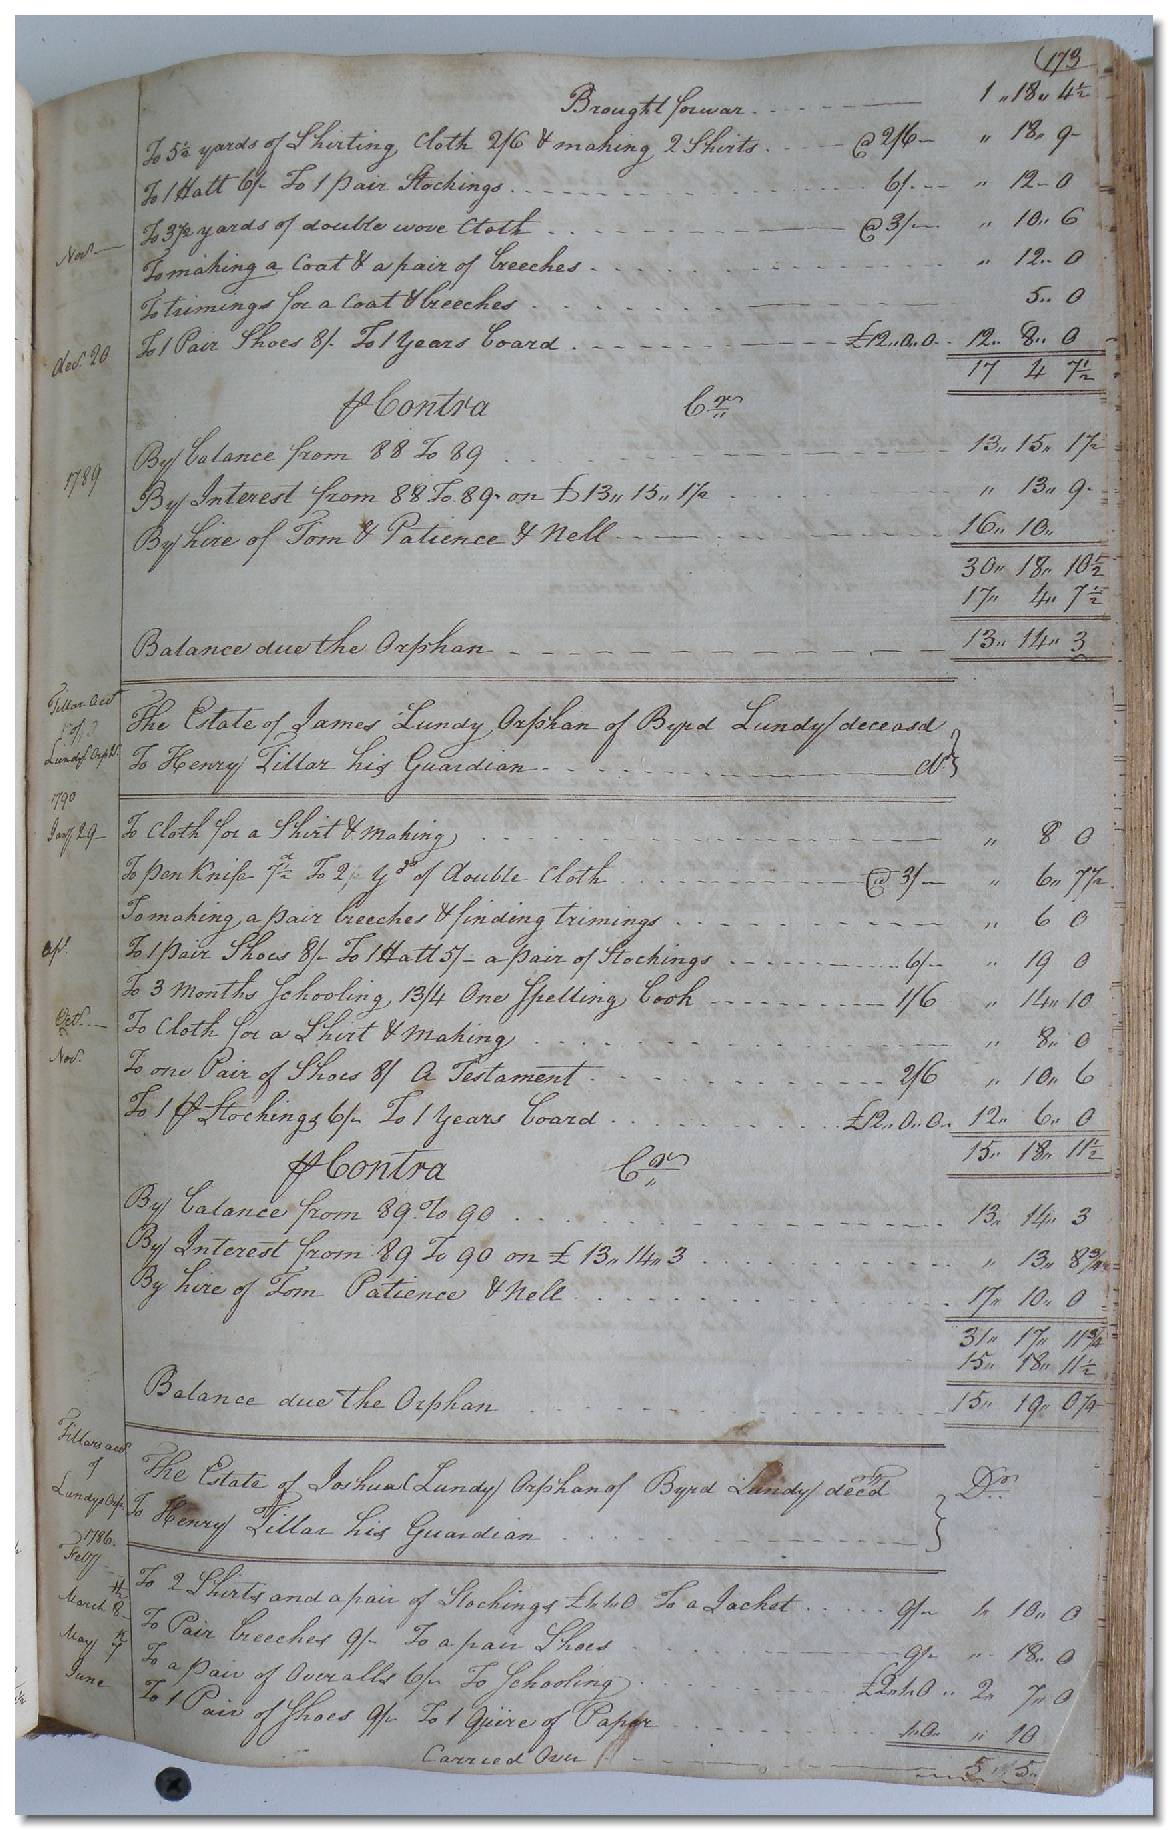 173
Brought forwar 1 „ 18 „ 4½
To 5½ yards of Shirting Cloth 2/6 & making 2 Shirts @ 2/6 „ 18 „ 9
To 1 Hatt 6/- To 1 pair Stockings 6/- „ 12 - 0
Nov. To 3½ yards of double wove Cloth @ 3/- „ 10 „ 6
To making a Coat & a pair of breeches „ 12 „ 0
To trimings for a Coat & breeches 5 „ 0
decr. 20 To 1 Pair Shoes 8/- To 1 Years board £12 „ 0 „ 0 12 „ 8 „ 0
17 4 7½
⅌ Contra Cr.
1789 By balance from 88 To 89 13 „ 15 „ 1½
By Interest from 88 To 89 on £13 „ 15 „ 1½ „ 13 „ 9
By hire of Tom & Patience & Nell 16 „ 10 „
30 „ 18 „ 10½
17 „ 4 „ 7½
Balance due the Orphan 13 „ 14 „ 3
Tillar acct
of
Lundys Orphs.
The Estate of James Lundy Orphan of Byrd Lundy deceasd
To Henry Tillar his Guardian dr
1790
Jany 29 To Cloth for a Shirt & making „ 8 0
To pen Knife 7½ To 2 Yds of double Cloth @ 3/- „ 6 „ 7½
To making a pair breeches & finding trimings „ 6 0
apl. To 1 pair Shoes 8/- To 1 Hatt 5/- a pair of Stockings 6/- „ 19 0
To 3 months Schooling, 13/4 One Spelling book 1/6 „ 14 „ 10
Octr. To Cloth for a Shirt & making „ 8 „ 0
Nov. To one Pair of Shoes 8/ A Testament 2/6 „ 10 „ 6
To 1 ⅌ Stockings 6/- To 1 Years board £12 „ 0 „ 0 12 „ 6 „ 0
15 „ 18 „ 11½
⅌ Contra Cr.
By balance from 89 To 90 13 „ 14 „ 3
By Interest from 89 To 90 on £13 „ 14 „ 3 „ 13 „ 8¾
By hire of Tom Patience & Nell 17 „ 10 „ 0
31 „ 17 „ 11¾
15 „ 18 „ 11½
Balance due the Orphan 15 „ 19 „ 0¼
Tillars acct
of
Lundys Orp.
The Estate of Joshua Lundy Orphan of Byrd Lundy decd Dr.
To Henry Tillar his Guardian
1786
Feby To 2 Shirts and a pair of Stockings To a Jacket 9/- 10 „ 0
March 8th To Pair breeches 9/- To a pair Shoes 9/- „ 18 „ 0
May 7th To a pair of Overalls 6/- To Schooling 2 „ 7 „ 0
June To 1 Pair of Shoes 9/- To 1 Quire of Paper „ 10
Carried Over 5 „ 5 „